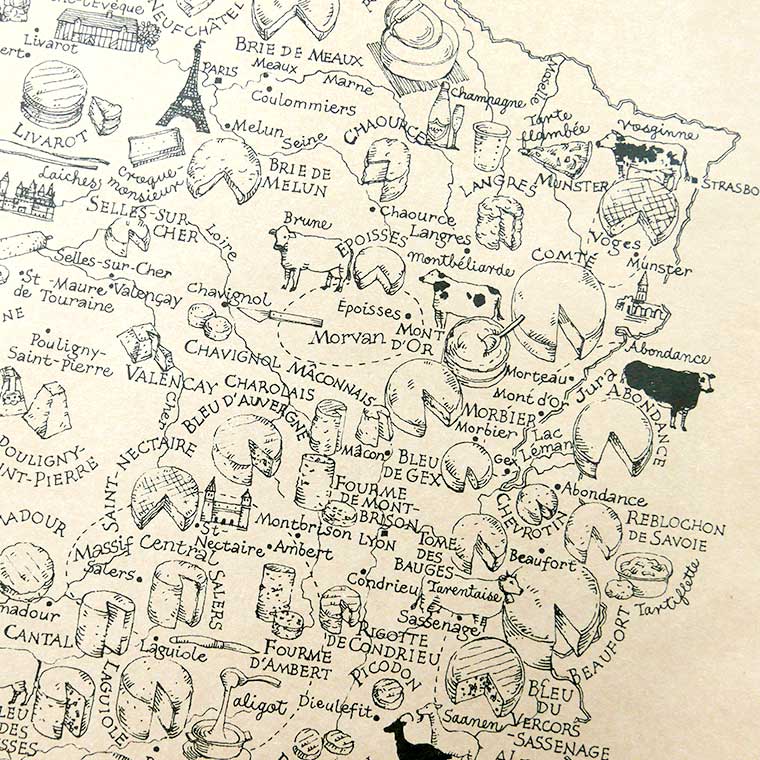 NEUFCHÂTEL
Livarot
LIVAROT
PARIS
BRIE DE MEAUX
Meaux
Marne
Coulommiers
Melun
Seine
BRIE DE
MELUN
Champagne
CHAOURCE
Chaource
Moselle
Tarte
flambée
Vosginne
MUNSTER
STRASBO
Voges
Munster
LANGRES
Langres
Laîches
Croque-
monsieur
SELLES-SUR-
CHER
Loire
Selles-sur-Cher
St-Maure
de Touraine
Valençay
VALENÇAY
Cher
Brune
ÉPOISSES
Époisses
montbéliarde
COMTÉ
Chavignol
CHAVIGNOL
Morvan
MONT
D'OR
Morteau
Mont d'Or
Jura
Abondance
ABONDANCE
Abondance
Pouligny-
Saint-Pierre
POULIGNY-
SAINT-PIERRE
CHAROLAIS
MÂCONNAIS
Mâcon
MORBIER
Morbier
Lac
Léman
BLEU D'AUVERGNE
BLEU
DE GEX
Gex
SAINT-NECTAIRE
St-
Nectaire
FOURME
DE MONT-
BRISON
Montbrison
Ambert
LYON
CHEVROTIN
REBLOCHON
DE SAVOIE
TOME
DES
BAUGES
Beaufort
BEAUFORT
Tarentaise
Tartiflette
Massif Central
Salers
SALERS
CANTAL
Laguiole
LAGUIOLE
FOURME
D'AMBERT
Condrieu
RIGOTTE
DE CONDRIEU
Sassenage
PICODON
Dieulefit
aligot
BLEU
DU
VERCORS
-SASSENAGE
Saanen
BLEU
DES